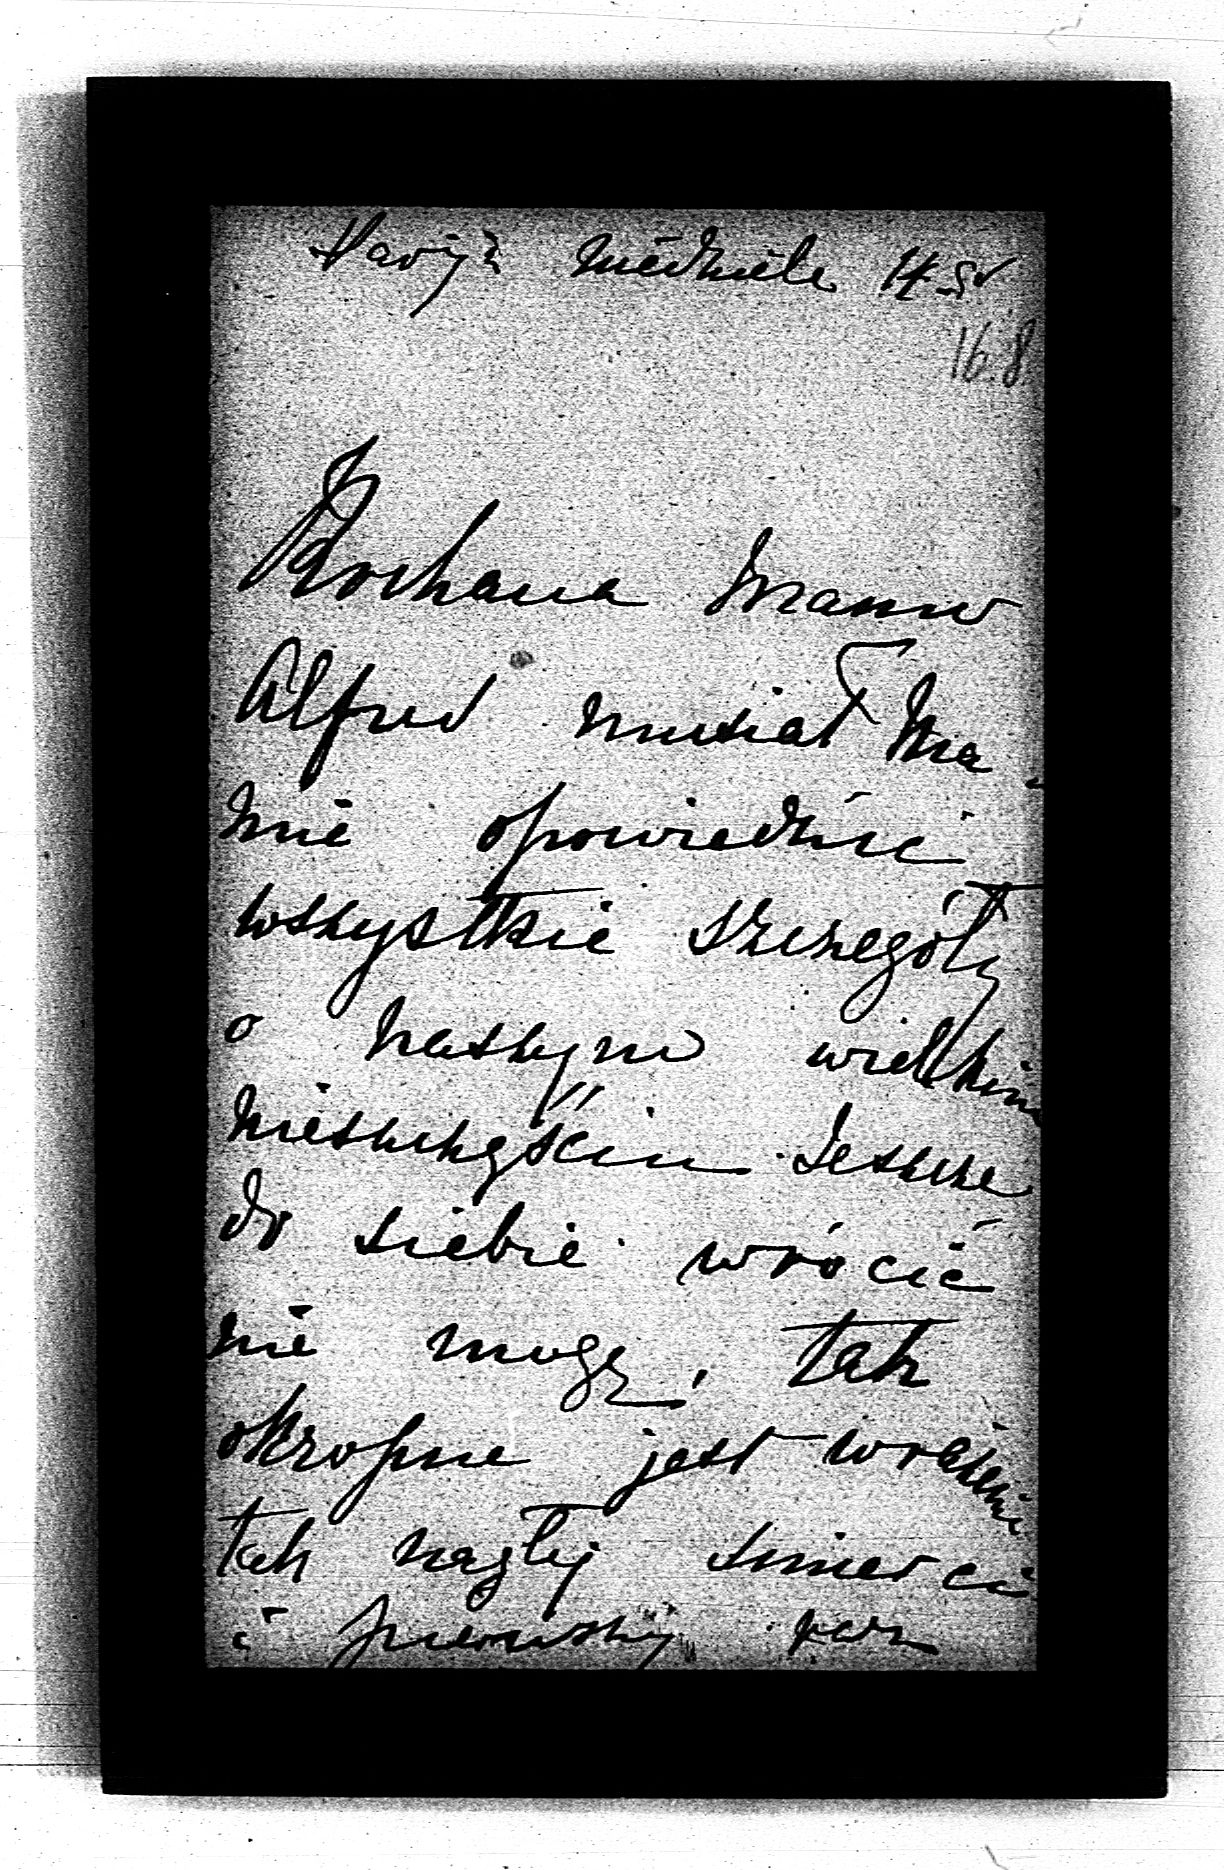 Paryż niedziela 14 Sr
168
Kochana Mamo
Alfred musiał Ma-
mie opowiedzieć
wszystkie szczegóły
o naszym wielkim
nieszczęściu. Jeszcze
do siebie wrócić
nie mogę, tak
okropne jest wrażenie
tak nagłej śmierci
i pierwszy raz